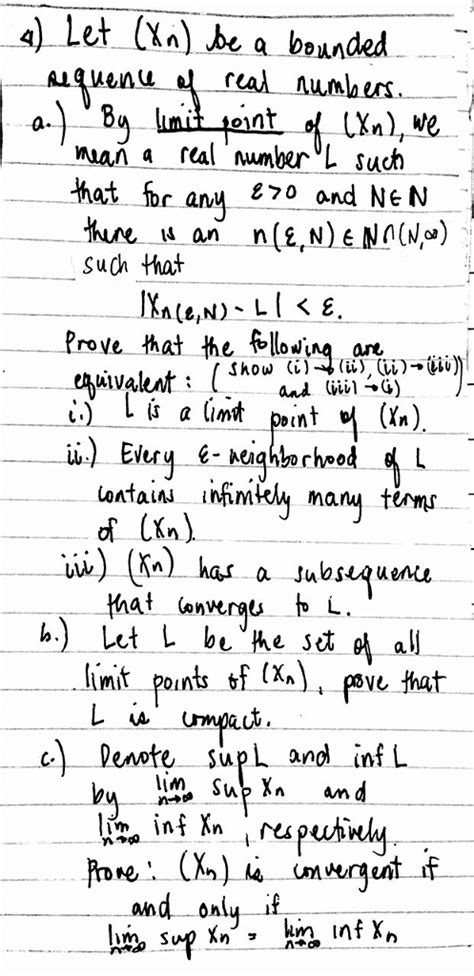 4) Let (Xn) be a bounded
sequence of real numbers.
a.) By limit point of (Xn), we
mean a real number L such
that for any ε>0 and N∈N
there is an n(ε,N)∈N∩(N,∞)
such that
|Xn(ε,N) - L| < ε.
Prove that the following are
equivalent: (show (i)→(ii), (ii)→(iii)
and (iii)→(i))
i.) L is a limit point of (Xn).
ii.) Every ε-neighborhood of L
contains infinitely many terms
of (Xn).
iii) (Xn) has a subsequence
that converges to L.
b.) Let L be the set of all
limit points of (Xn), pove that
L is compact.
c.) Denote sup L and inf L
by lim n→∞ sup Xn and
lim n→∞ inf Xn, respectively.
Prove: (Xn) is convergent if
and only if
lim n→∞ sup Xn = lim n→∞ inf Xn